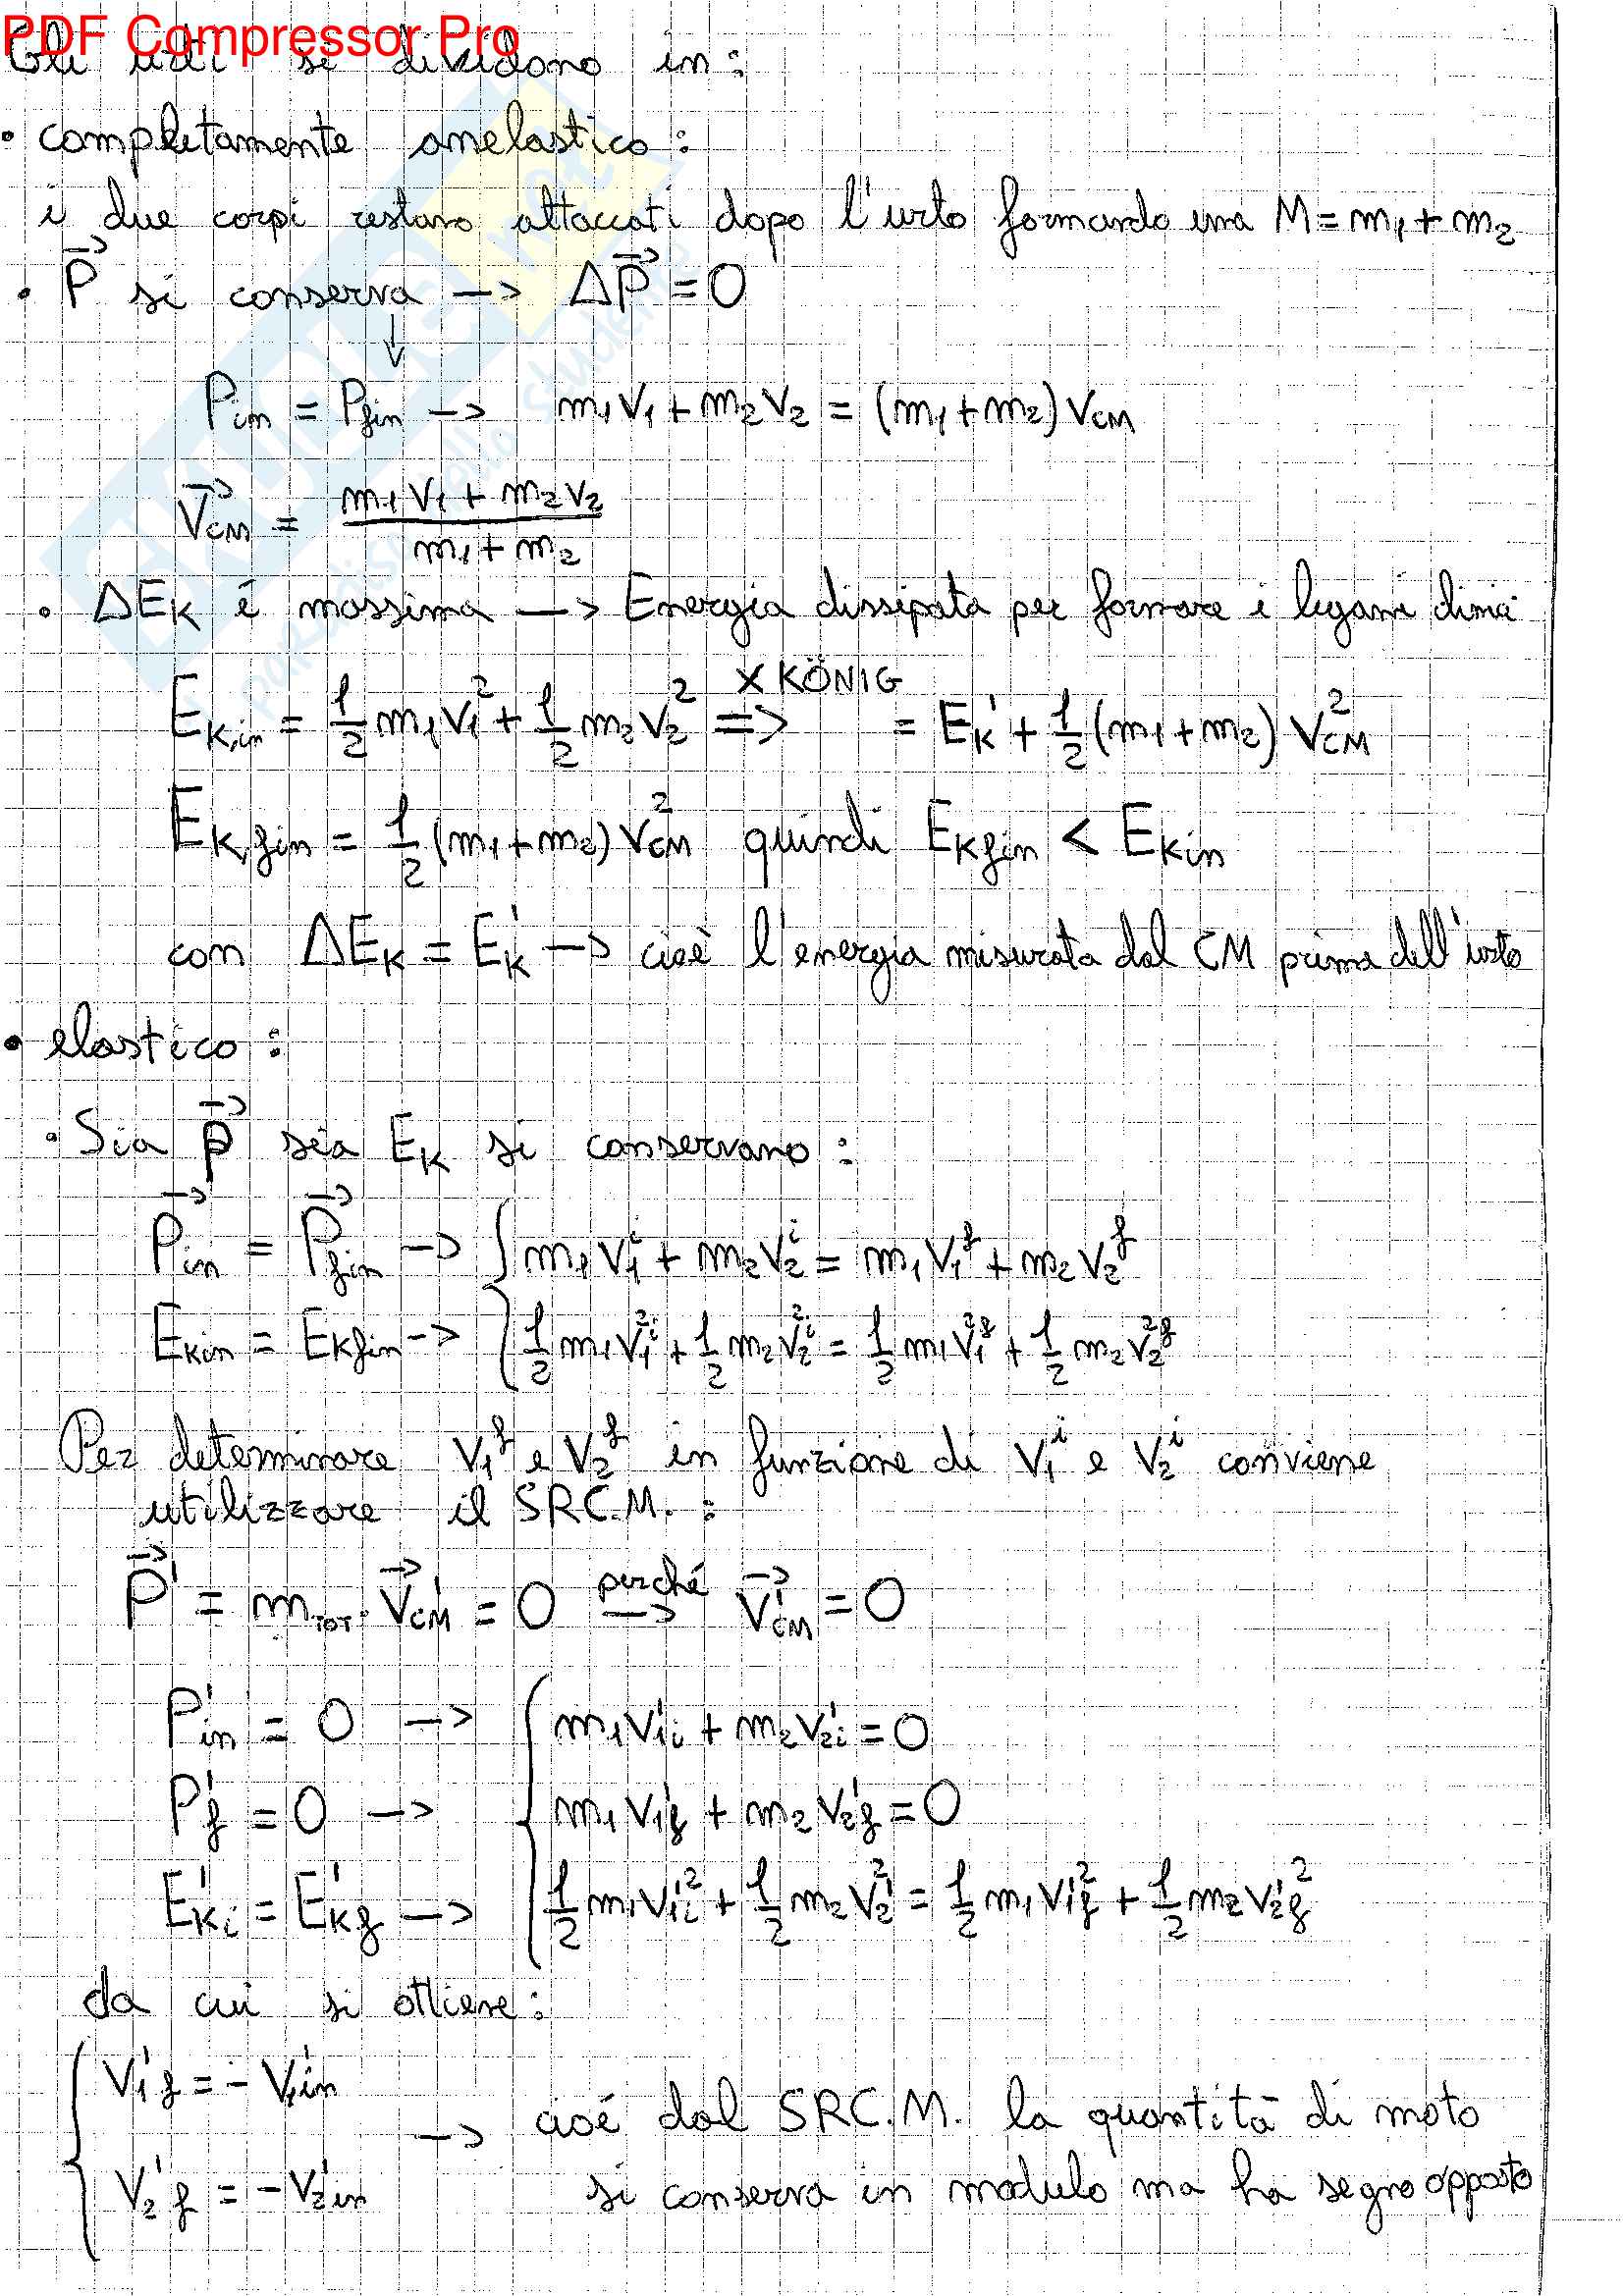 PDF Compressor Pro
Gli urti si dividono in:
• completamente anelastico:
i due corpi restano attaccati dopo l'urto formando una M = m₁ + m₂
• P⃗ si conserva —> ΔP⃗ = 0
↓
Pin = Pfin —> m₁V₁ + m₂V₂ = (m₁ + m₂) VCM
V⃗CM = (m₁V₁ + m₂V₂) / (m₁ + m₂)
• ΔEK é massima —> Energia dissipata per formare i legami
EK,in = 1/2 m₁V₁² + 1/2 m₂V₂² =>(X KÖNIG) = E'K + 1/2 (m₁ + m₂) VCM²
EK,fin = 1/2 (m₁ + m₂) VCM² quindi EKfin < EKin
con ΔEK = E'K —> cioè l'energia misurata dal CM prima dell'urto
• elastico:
• Sia p⃗ sia EK si conservano:
P⃗in = P⃗fin —> { m₁V₁ⁱ + m₂V₂ⁱ = m₁V₁ᶠ + m₂V₂ᶠ
EKin = EKfin —> { 1/2 m₁V₁²ⁱ + 1/2 m₂V₂²ⁱ = 1/2 m₁V₁²ᶠ + 1/2 m₂V₂²ᶠ
Per determinare V₁ᶠ e V₂ᶠ in funzione di V₁ⁱ e V₂ⁱ conviene
utilizzare il SRC.M.:
P⃗' = mTOT · V⃗'CM = 0 perché —> V⃗'CM = 0
P'in = 0 —> { m₁V'1i + m₂V'2i = 0
P'f = 0 —> { m₁V'1f + m₂V'2f = 0
E'Ki = E'Kf —> { 1/2 m₁V'1i² + 1/2 m₂V'2² = 1/2 m₁V'1f² + 1/2 m₂V'2f²
da cui si ottiene:
{ V'1f = - V'1in
—> cioé dal SRC.M. la quantità di moto
{ V'2f = - V'2in
si conserva in modulo ma ha segno opposto